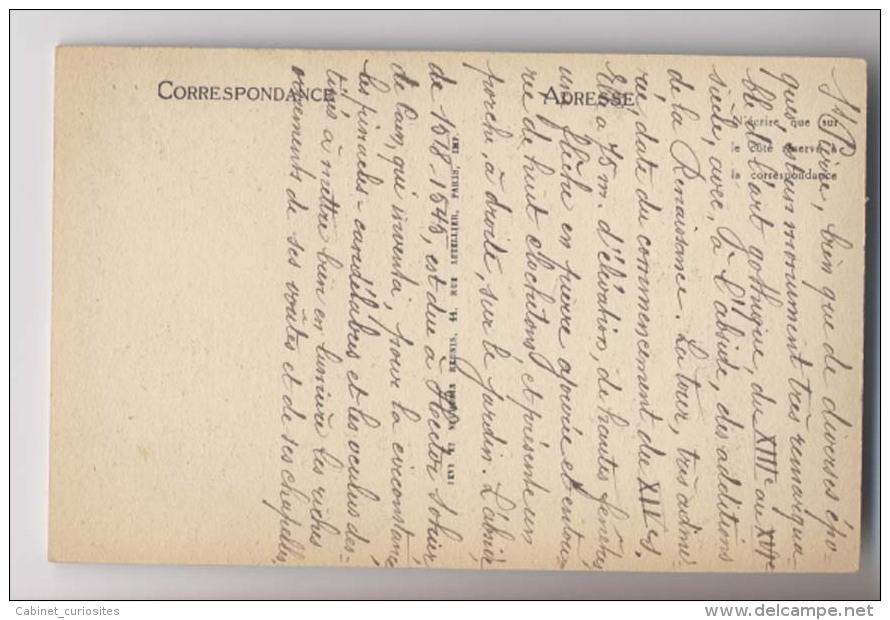 CORRESPONDANCE
ADRESSE
N'écrire que sur
le côté réservé à
la correspondance
St Pierre, bien que de diverses épo-
ques, est un monument très remarqua-
ble de l'art gothique, du XIIIe au XVIe
siècle, avec, à l'abside, des additions
de la Renaissance. La tour, très admi-
rée, date du commencement du XIVe s.
Elle a 75 m. d'élévation, de hautes fenêtres
une flèche en pierre ajourée et entou-
rée de huit clochetons, et présente un
porche, à droite, sur le jardin. L'abside
de 1518-1545, est due à Hector Sohier
de Caen, qui inventa, pour la circonstance
les pinacles-candélabres et les oculus des-
tinés à mettre bien en lumière les riches
ornements de ses voûtes et de ses chapelles.
44, RUE LETELLIER, PARIS, IMP.
Cabinet_curiosites
delcampe.net